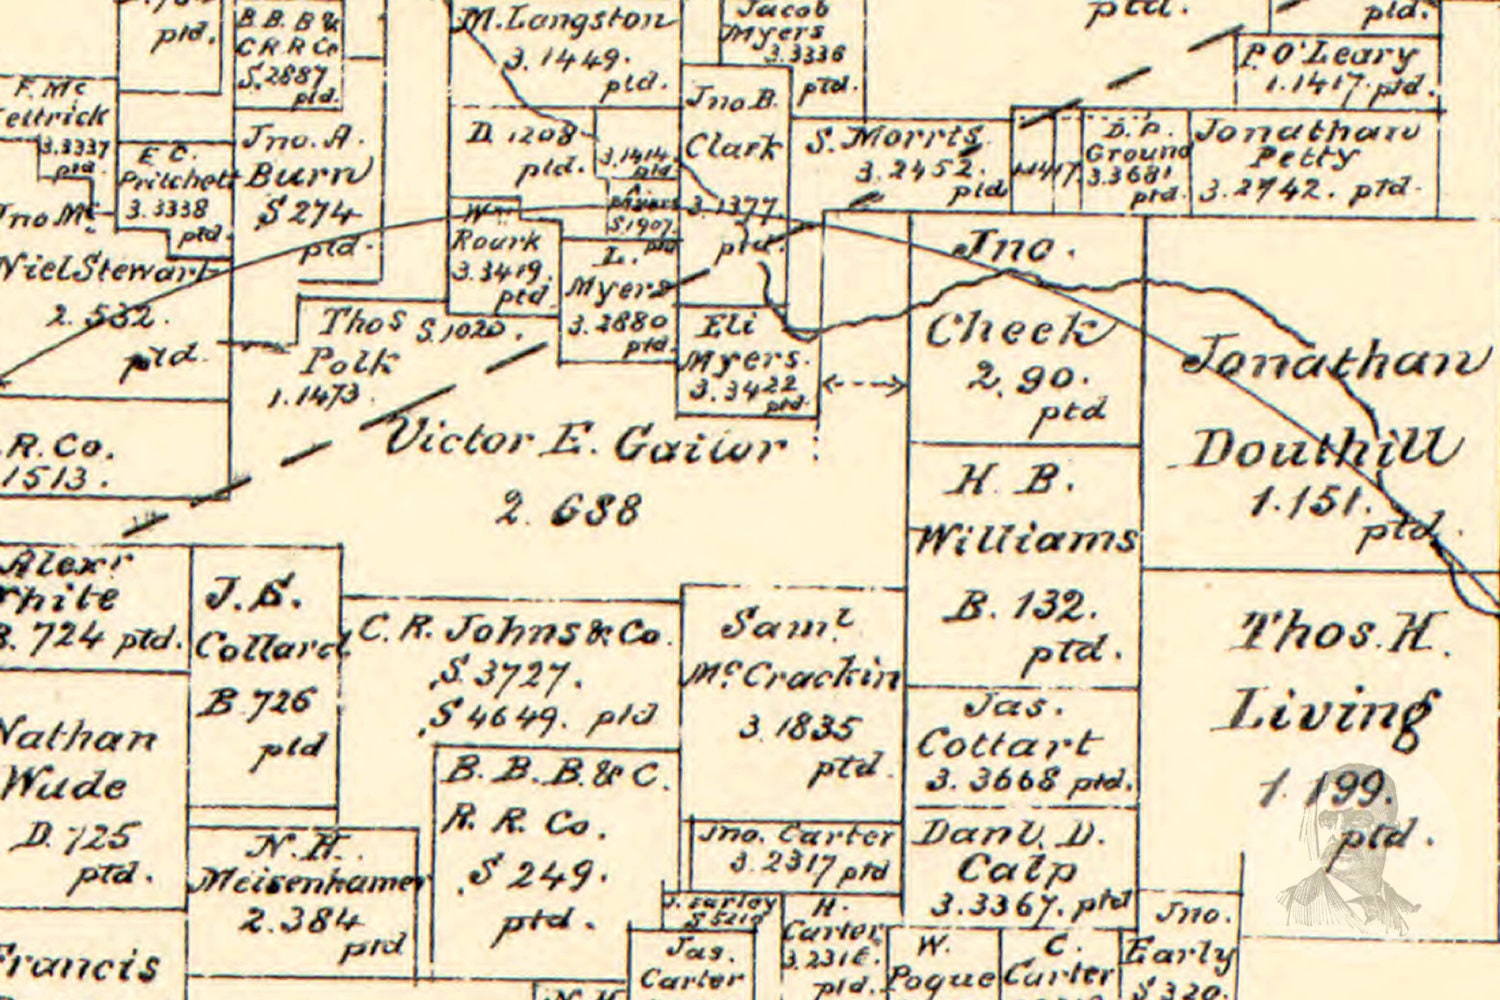 ptd.
B.B.B.&
C R R Co
S.2887
ptd.
M. Langston
3.1449.
ptd.
Jacob
Myers
3.3336
ptd.
ptd.
ptd.
P. O'Leary
1.1417. ptd.
F. Mc
3.3337
ptd.
E C.
Pritchett
3.3338
ptd.
Jno. A.
Burn
S 274
ptd.
D. 1208
ptd.
3.1414.
ptd.
S.1907.
ptd
Jno B.
Clark
3.1377.
ptd.
S. Morris.
3.2452.
ptd
D. P.
Ground
3.3681
ptd.
Jonathan
Petty
3.2742. ptd.
Jno Mc
Niel Stewart
2.532.
ptd.
W
Rourk
3.3419.
ptd
L.
Myers
3.2880
ptd.
Thos S.1020.
Polk
1.1473.
Eli
Myers.
3.3422
ptd.
Jno.
Cheek
2.90.
ptd
Jonathan
Douthill
1.151.
ptd.
R. Co.
1513.
Victor E. Gaiwr
2.688
H. B.
Williams
B. 132.
ptd.
Alexr
White
B. 724 ptd.
J. S.
Collard
B 726
ptd
C. R. Johns & Co.
S 3727.
S 4649. ptd
Saml
McCrackin
3.1835
ptd.
Thos. H.
Living
1.199.
ptd.
Nathan
Wude
D. 725
ptd.
Jas.
Cottart
3.3668 ptd.
B. B. B. & C.
R. R. Co.
S 249.
ptd.
N. H.
Meisenhamer
2.384
ptd
Jno. Carter
3.2317 ptd
Danl. D.
Calp
3.3367. ptd
J. Earley
S 5210
H.
Carter
3.2316.
ptd.
Jno.
Early
S 320.
Francis
Jas.
Carter
W.
Pogue
C.
Carter
N. H.